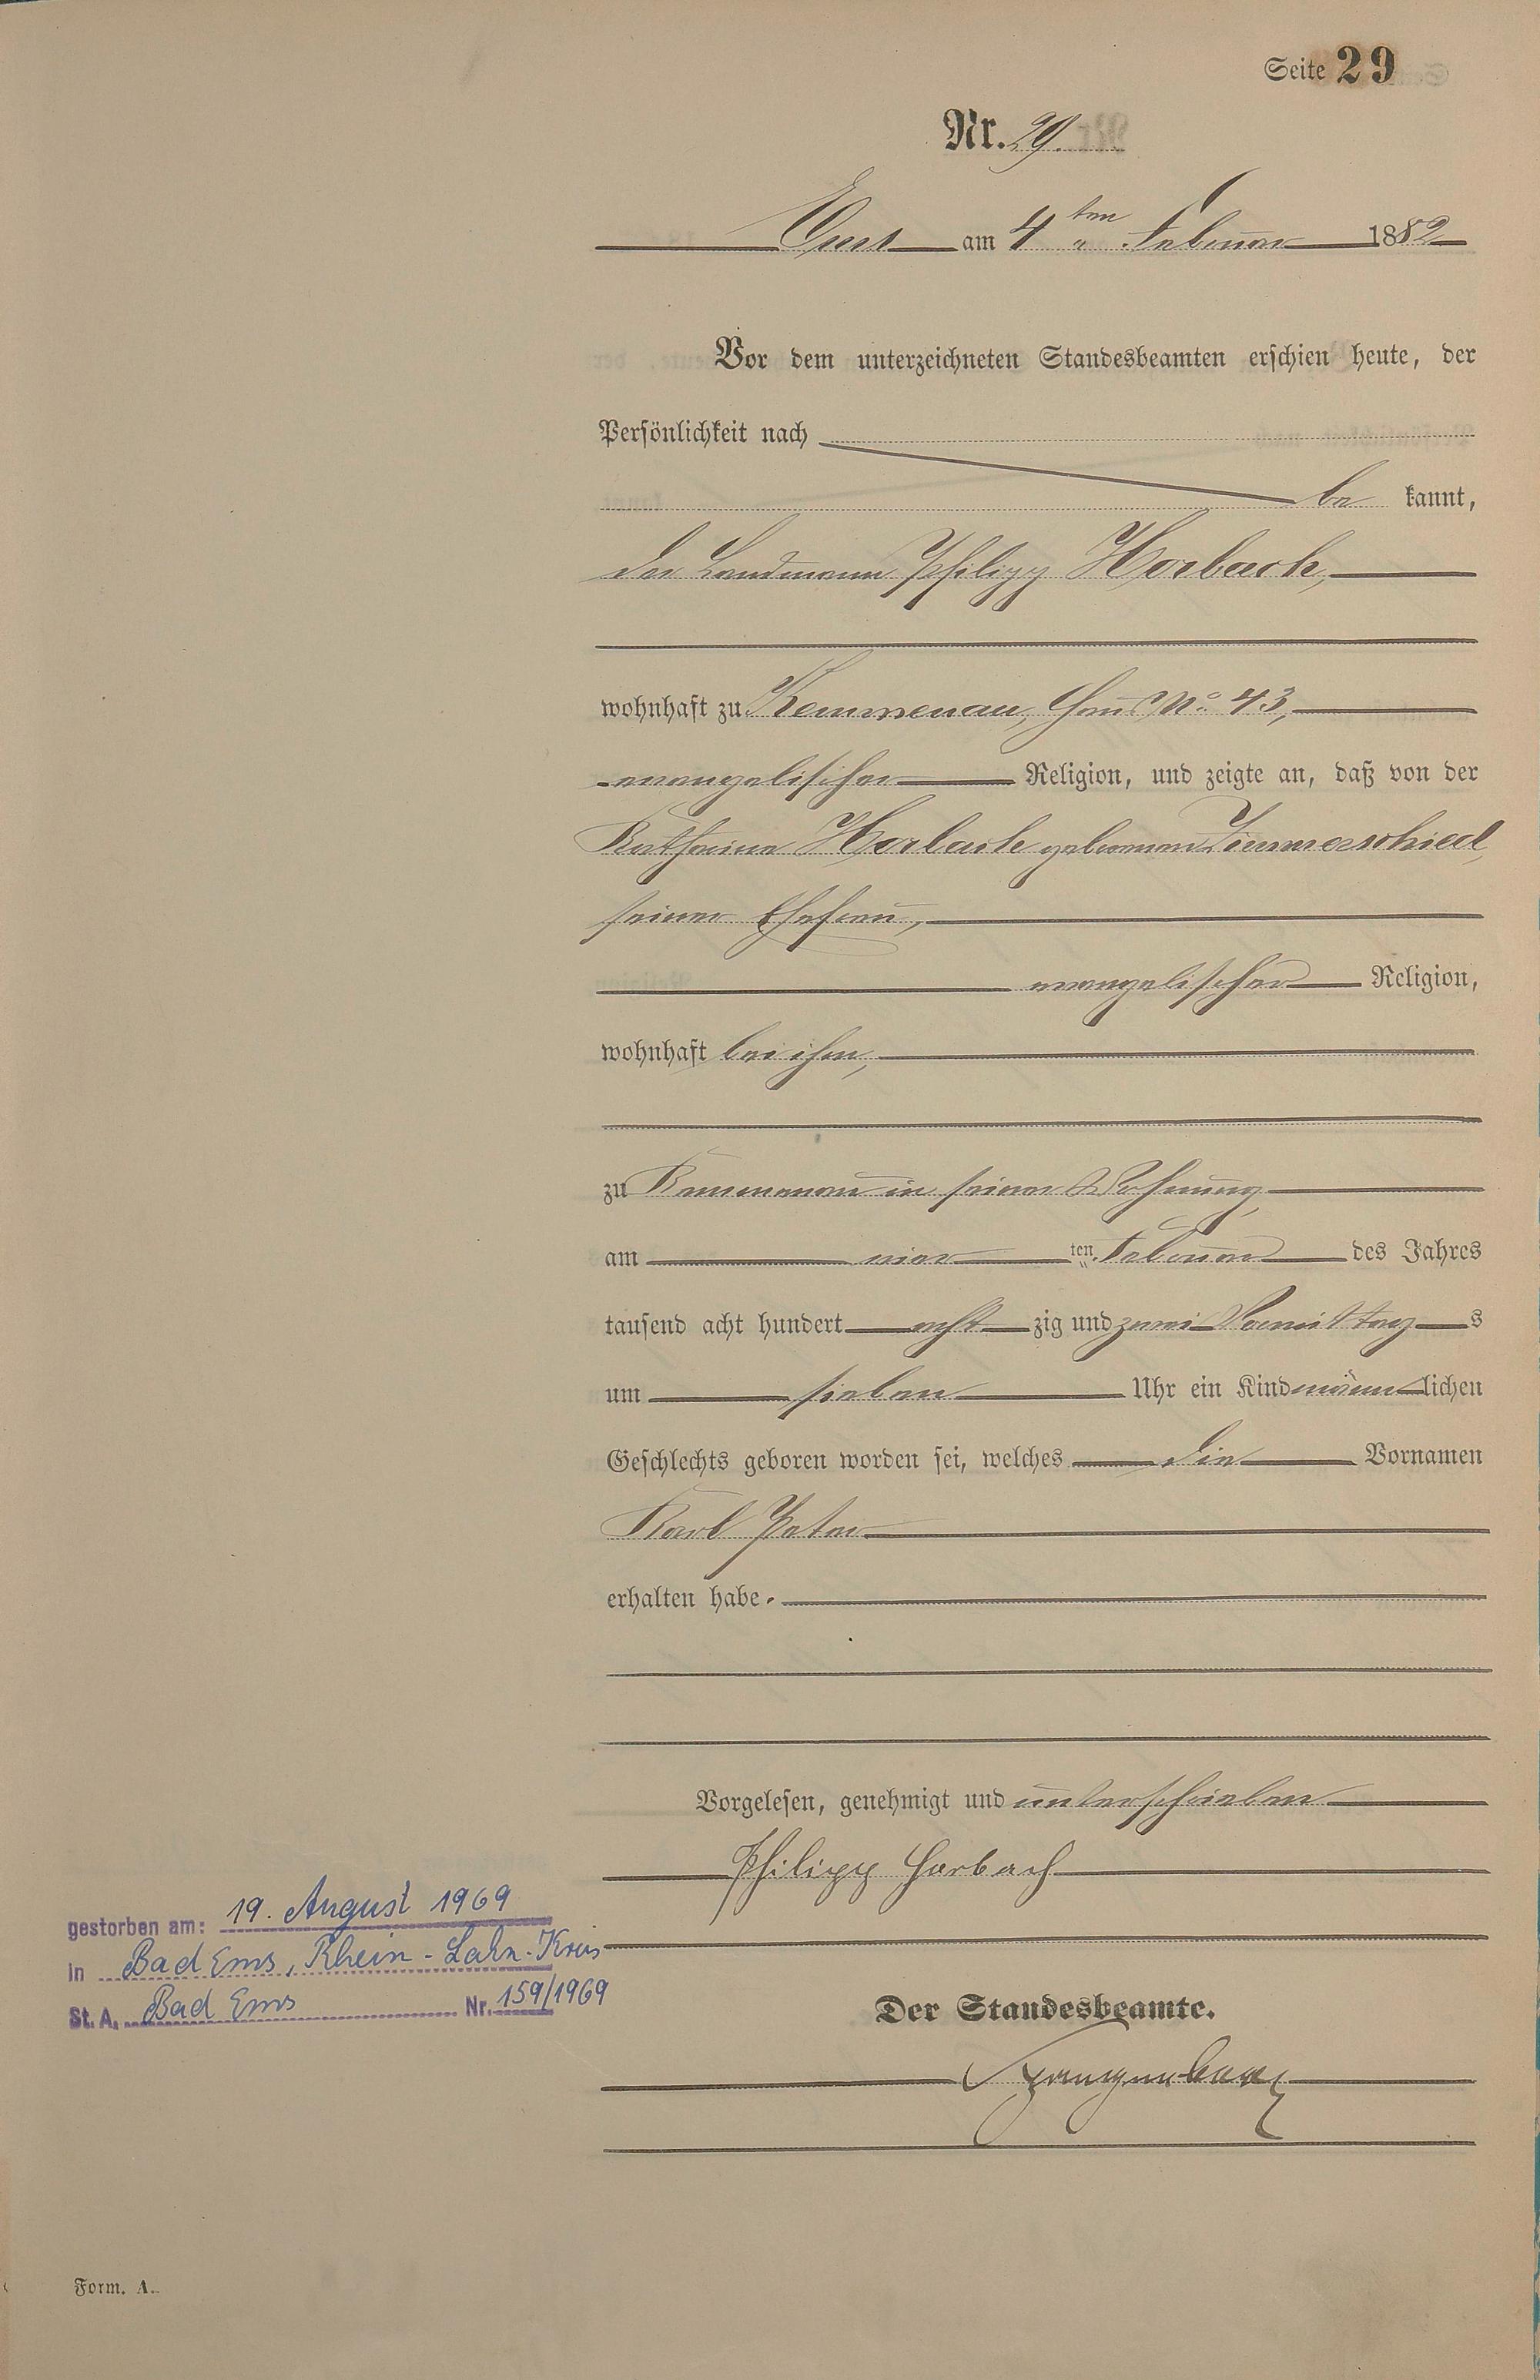 Seite 29
Nr. 29.
Ems am 4ten Februar 1882
Vor dem unterzeichneten Standesbeamten erschien heute, der
Persönlichkeit nach
be kannt,
der Landmann Philipp Horbach,
wohnhaft zu Kemmenau, Haus No. 43,
evangelischer Religion, und zeigte an, daß von der
Katharina Horbach geborenen Zimmerschied,
seiner Ehefrau,
evangelischer Religion,
wohnhaft bei ihm,
zu Kemmenau in seiner Wohnung,
am vier ten Februar des Jahres
tausend acht hundert acht zig und zwei Vormittag s
um sieben Uhr ein Kind männ lichen
Geschlechts geboren worden sei, welches die Vornamen
Karl Peter
erhalten habe.
Vorgelesen, genehmigt und unterschrieben
Philipp Horbach
gestorben am: 19. August 1969
in Bad Ems, Rhein-Lahn-Kreis
St. A. Bad Ems Nr. 159/1969
Der Standesbeamte.
Spangenberg
Form. A.